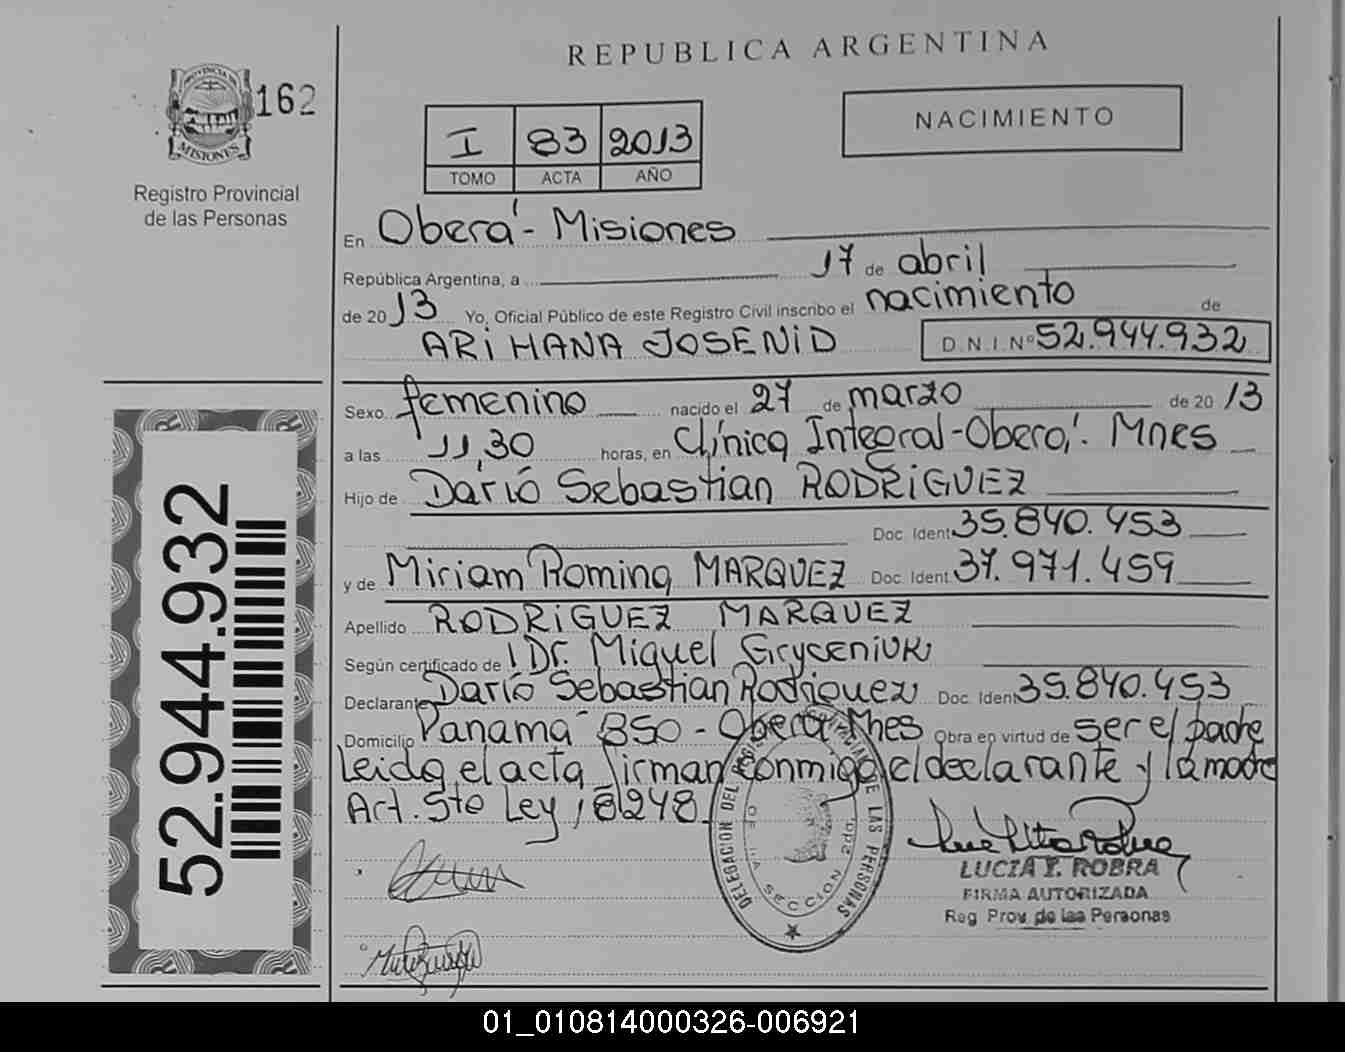 REPUBLICA ARGENTINA
PROVINCIA DE
MISIONES
162
Registro Provincial
de las Personas
I 83 2013
TOMO ACTA AÑO
NACIMIENTO
En Oberá - Misiones
República Argentina, a 17 de abril
de 2013 Yo, Oficial Público de este Registro Civil inscribo el nacimiento de
ARIHANA JOSENID D.N.I. Nº 52.944.932
Sexo femenino nacido el 27 de marzo de 2013
a las 11,30 horas, en Clínica Integral - Oberá. Mnes
Hijo de Darió Sebastian RODRIGUEZ
Doc. Ident 35.840.453
y de Miriam Romina MARQUEZ Doc. Ident. 37.971.459
Apellido RODRIGUEZ MARQUEZ
Según certificado de Dr. Miguel Gryceniuk
Declarante Darió Sebastian Rodriguez Doc. Ident 35.840.453
Domicilio Panamá 850 - Oberá Mnes Obra en virtud de ser el padre
Leida el acta firman conmigo el declarante y la madre
Art. 5to Ley 18248.
52.944.932
DELEGACION DEL REGISTRO PROVINCIAL DE LAS PERSONAS
SECCION 2da.
LUCIA Y. ROBRA
FIRMA AUTORIZADA
Reg Prov de las Personas
01_010814000326-006921